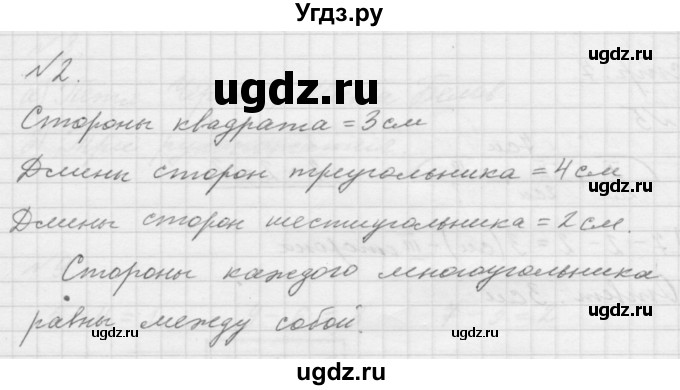 Угдз.ру
№2.
ugdz.ru
Стороны квадрата = 3 см
Длины сторон треугольника = 4 см
Длины сторон шестиугольника = 2 см.
Стороны каждого многоугольника
равны между собой.
ugdz.ru
ugdz.ru
ugdz.ru
ugdz.ru
ugdz.ru
ugdz.ru
ugdz.ru